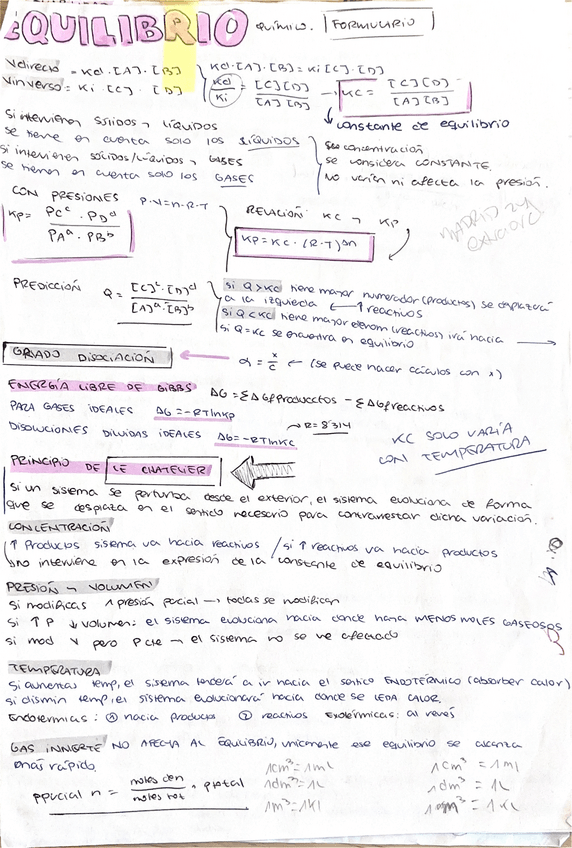 EQUILIBRIO QUÍMICO. FORMULARIO
Vdirecto = Kd · [A] · [B]
Vinverso = Ki · [C] · [D]
Kd·[A]·[B] = Ki[C]·[D]
Kd/Ki = [C][D]/[A][B] → KC = [C][D]/[A][B]
constante de equilibrio
Si intervienen SÓLIDOS y LÍQUIDOS
se tiene en cuenta solo los LÍQUIDOS
Si intervienen SÓLIDOS/LÍQUIDOS y GASES
se tienen en cuenta solo los GASES
Su concentración
se considera CONSTANTE.
No varía ni afecta la presión.
CON PRESIONES P·V=n·R·T
KP = PC^c · PD^d / PA^a · PB^b
RELACIÓN KC y KP
KP = KC · (R·T)^Δn
MADRID 24
PREDICCIÓN Q = [C]^c · [D]^d / [A]^a · [B]^b
Si Q>KC tiene mayor numerador (productos) se desplazará
a la izquierda ← ↑ reactivos
Si Q<KC tiene mayor denom (reactivos) irá hacia →
Si Q=KC se encuentra en equilibrio
GRADO DISOCIACIÓN ← α = x/c ← (se puede hacer cálculos con x)
ENERGÍA LIBRE DE GIBBS ΔG = Σ ΔGf productos - Σ ΔGf reactivos
PARA GASES IDEALES ΔG = -RT lnKp
DISOLUCIONES DILUIDAS IDEALES ΔG = -RT lnKC
R = 8'314
KC SOLO VARÍA
CON TEMPERATURA
PRINCIPIO DE LE CHATELIER
Si un sistema se perturba desde el exterior, el sistema evoluciona de forma
que se desplaza en el sentido necesario para contrarrestar dicha variación.
CONCENTRACIÓN
↑ Productos sistema va hacia reactivos / si ↑ reactivos va hacia productos
no interviene en la expresión de la constante de equilibrio
PRESIÓN y VOLUMEN
Si modificas 1 presión parcial → todas se modifican
Si ↑ P ↓ volumen: el sistema evoluciona hacia donde haya MENOS MOLES GASEOSOS
Si mod V pero P cte → el sistema no se ve afectado
TEMPERATURA
Si aumentas temp, el sistema tenderá a ir hacia el sentido ENDOTÉRMICO (absorber calor)
Si dismin temp, el sistema evolucionará hacia donde se CEDA CALOR.
Endotérmicas: ① hacia productos ② reactivos Exotérmicas: al revés
GAS INNERTE NO AFECTA AL EQUILIBRIO, unicamente ese equilibrio se alcanza
más rápido.
pparcial n = moles den / moles tot · ptotal
1cm³ = 1ml
1dm³ = 1L
1m³ = 1kl
1cm³ = 1ml
1dm³ = 1L
1m³ = 1kL